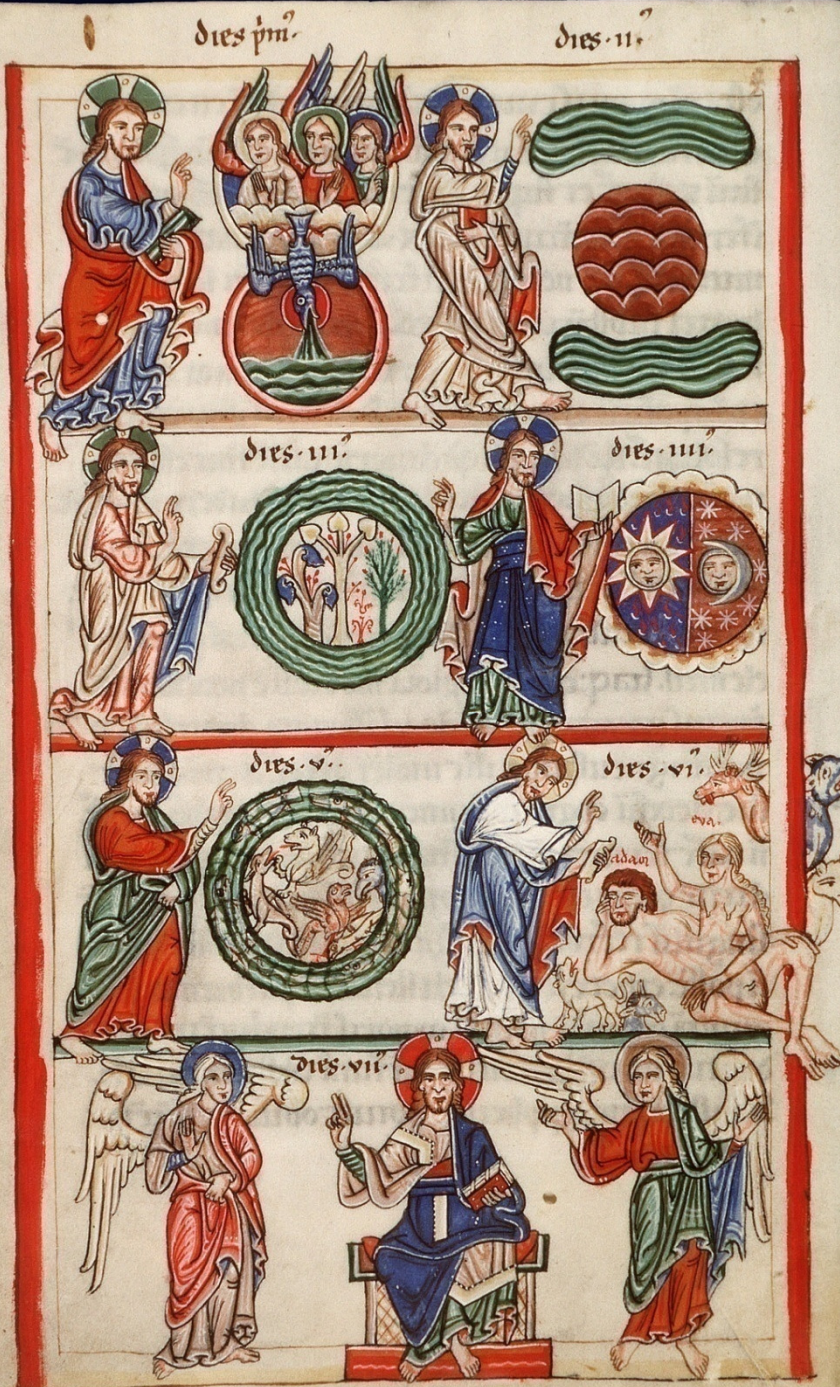 dies pͥmꝰ.
dies·ii·ꝰ
dies·iii·ꝰ
dies·iiii·ꝰ
dies·v·ꝰ
dies·vi·ꝰ
eva
adam
dies·vii·ꝰ